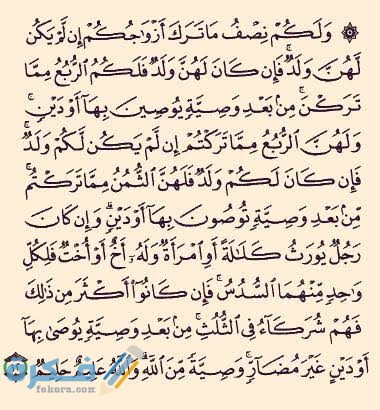 ۞ وَلَكُمْ نِصْفُ مَا تَرَكَ أَزْوَٰجُكُمْ إِن لَّمْ يَكُن
لَّهُنَّ وَلَدٌۚ فَإِن كَانَ لَهُنَّ وَلَدٌ فَلَكُمُ ٱلرُّبُعُ مِمَّا
تَرَكْنَۚ مِنۢ بَعْدِ وَصِيَّةٍ يُوصِينَ بِهَآ أَوْ دَيْنٍۚ
وَلَهُنَّ ٱلرُّبُعُ مِمَّا تَرَكْتُمْ إِن لَّمْ يَكُن لَّكُمْ وَلَدٌۚ
فَإِن كَانَ لَكُمْ وَلَدٌ فَلَهُنَّ ٱلثُّمُنُ مِمَّا تَرَكْتُمۚ
مِّنۢ بَعْدِ وَصِيَّةٍ تُوصُونَ بِهَآ أَوْ دَيْنٍۗ وَإِن كَانَ
رَجُلٌ يُورَثُ كَلَٰلَةً أَوِ ٱمْرَأَةٌ وَلَهُۥٓ أَخٌ أَوْ أُخْتٌ فَلِكُلِّ
وَٰحِدٍ مِّنْهُمَا ٱلسُّدُسُۚ فَإِن كَانُوٓا۟ أَكْثَرَ مِن ذَٰلِكَ
فَهُمْ شُرَكَآءُ فِي ٱلثُّلُثِۚ مِنۢ بَعْدِ وَصِيَّةٍ يُوصَىٰ بِهَآ
أَوْ دَيْنٍ غَيْرَ مُضَآرٍّۚ وَصِيَّةً مِّنَ ٱللَّهِۗ وَٱللَّهُ عَلِيمٌ حَلِيمٌ
فكرة
fokera.com